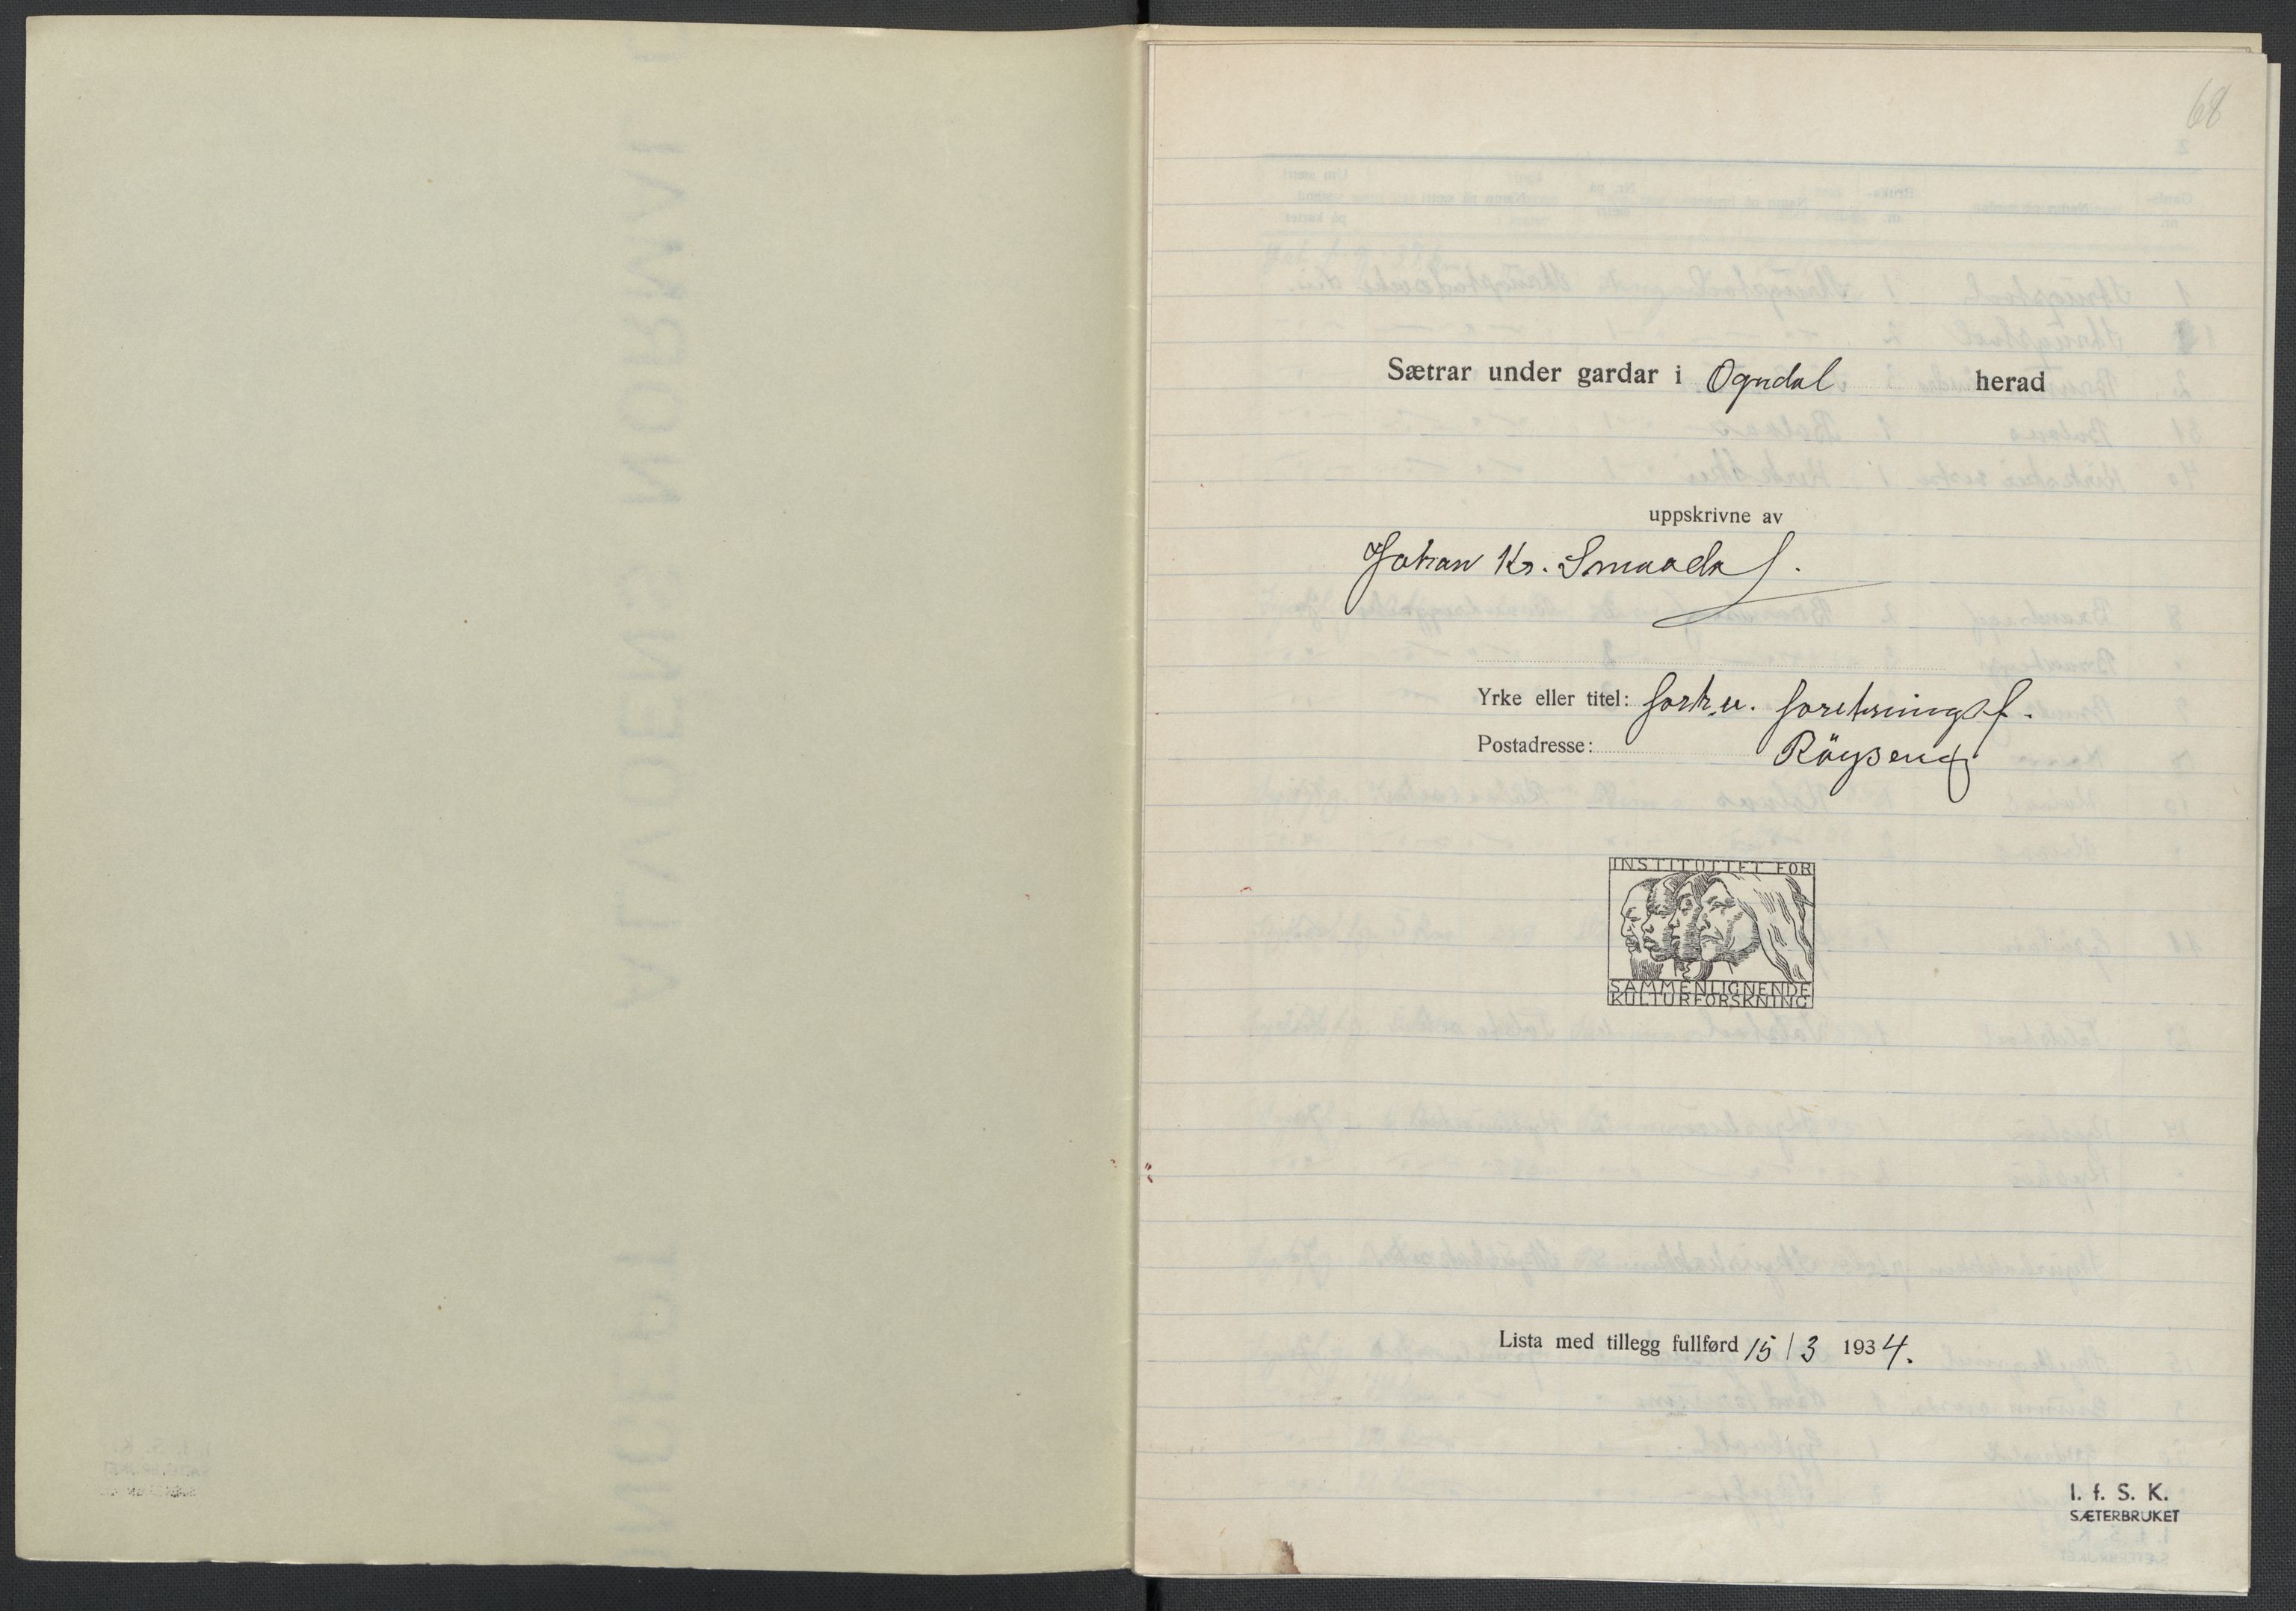 68
Sætrar under gardar i Ogndal herad
uppskrivne av
Johan Kr. Smaadal.
Yrke eller titel: forretningsf.
Postadresse: Röyseng
INSTITUTTET FOR
SAMMENLIGNENDE
KULTURFORSKNING
Lista med tillegg fullførd 15/3 1934.
I. f. S. K.
SÆTERBRUKET